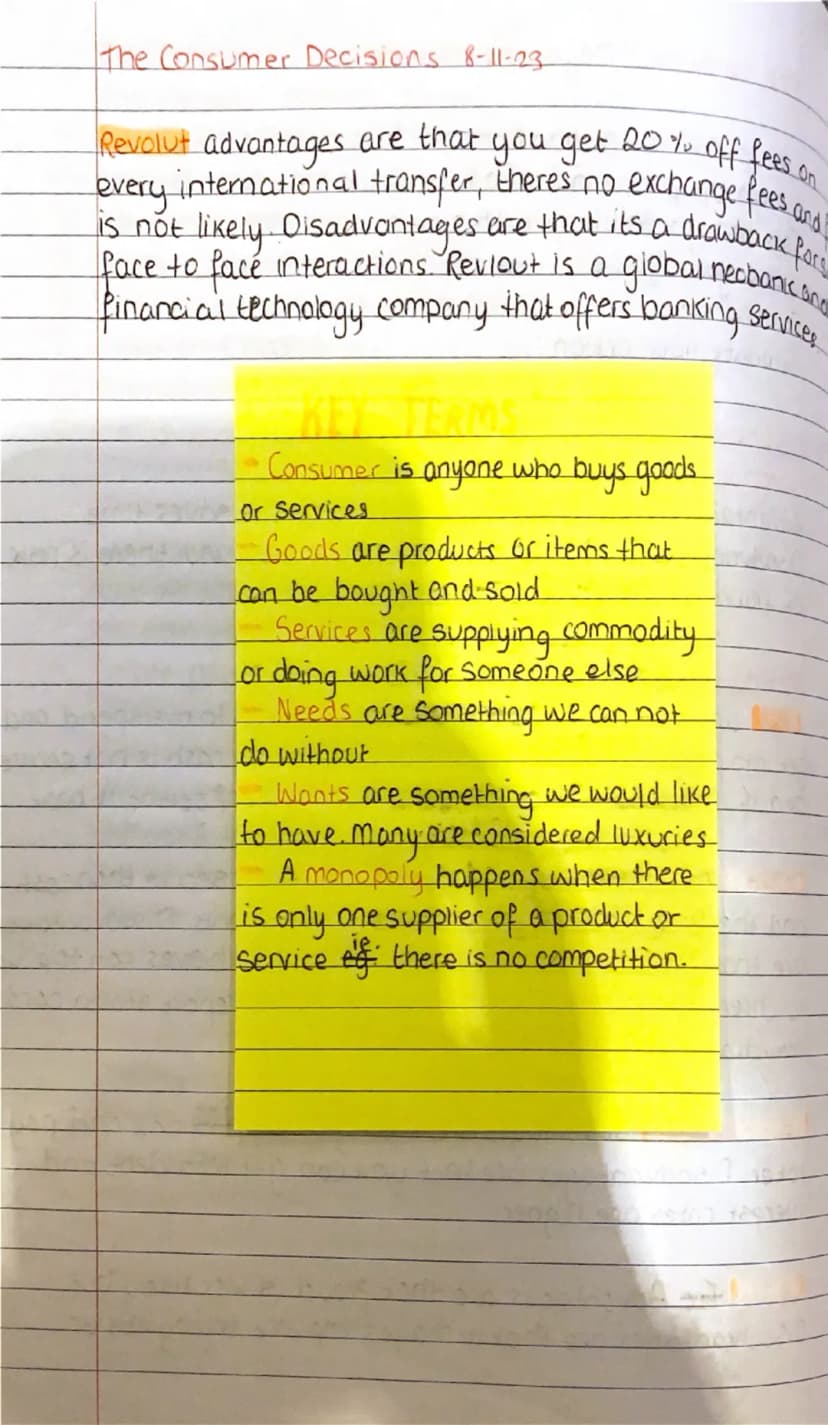 The Consumer Decisions 8-11-23
Revolut advantages are that you get 20% off fees on
every international transfer, theres no exchange fees and
is not likely. Disadvantages are that its a drawback for
face to face interactions. Revlout is a global neobank and
financial technology company that offers banking services
KEY TERMS
- Consumer is anyone who buys goods
or services
- Goods are products or items that
can be bought and sold
- Services are supplying commodity
or doing work for someone else
- Needs are something we can not
do without
- Wants are something we would like
to have. Many are considered luxuries
- A monopoly happens when there
is only one supplier of a product or
service ie. there is no competition.